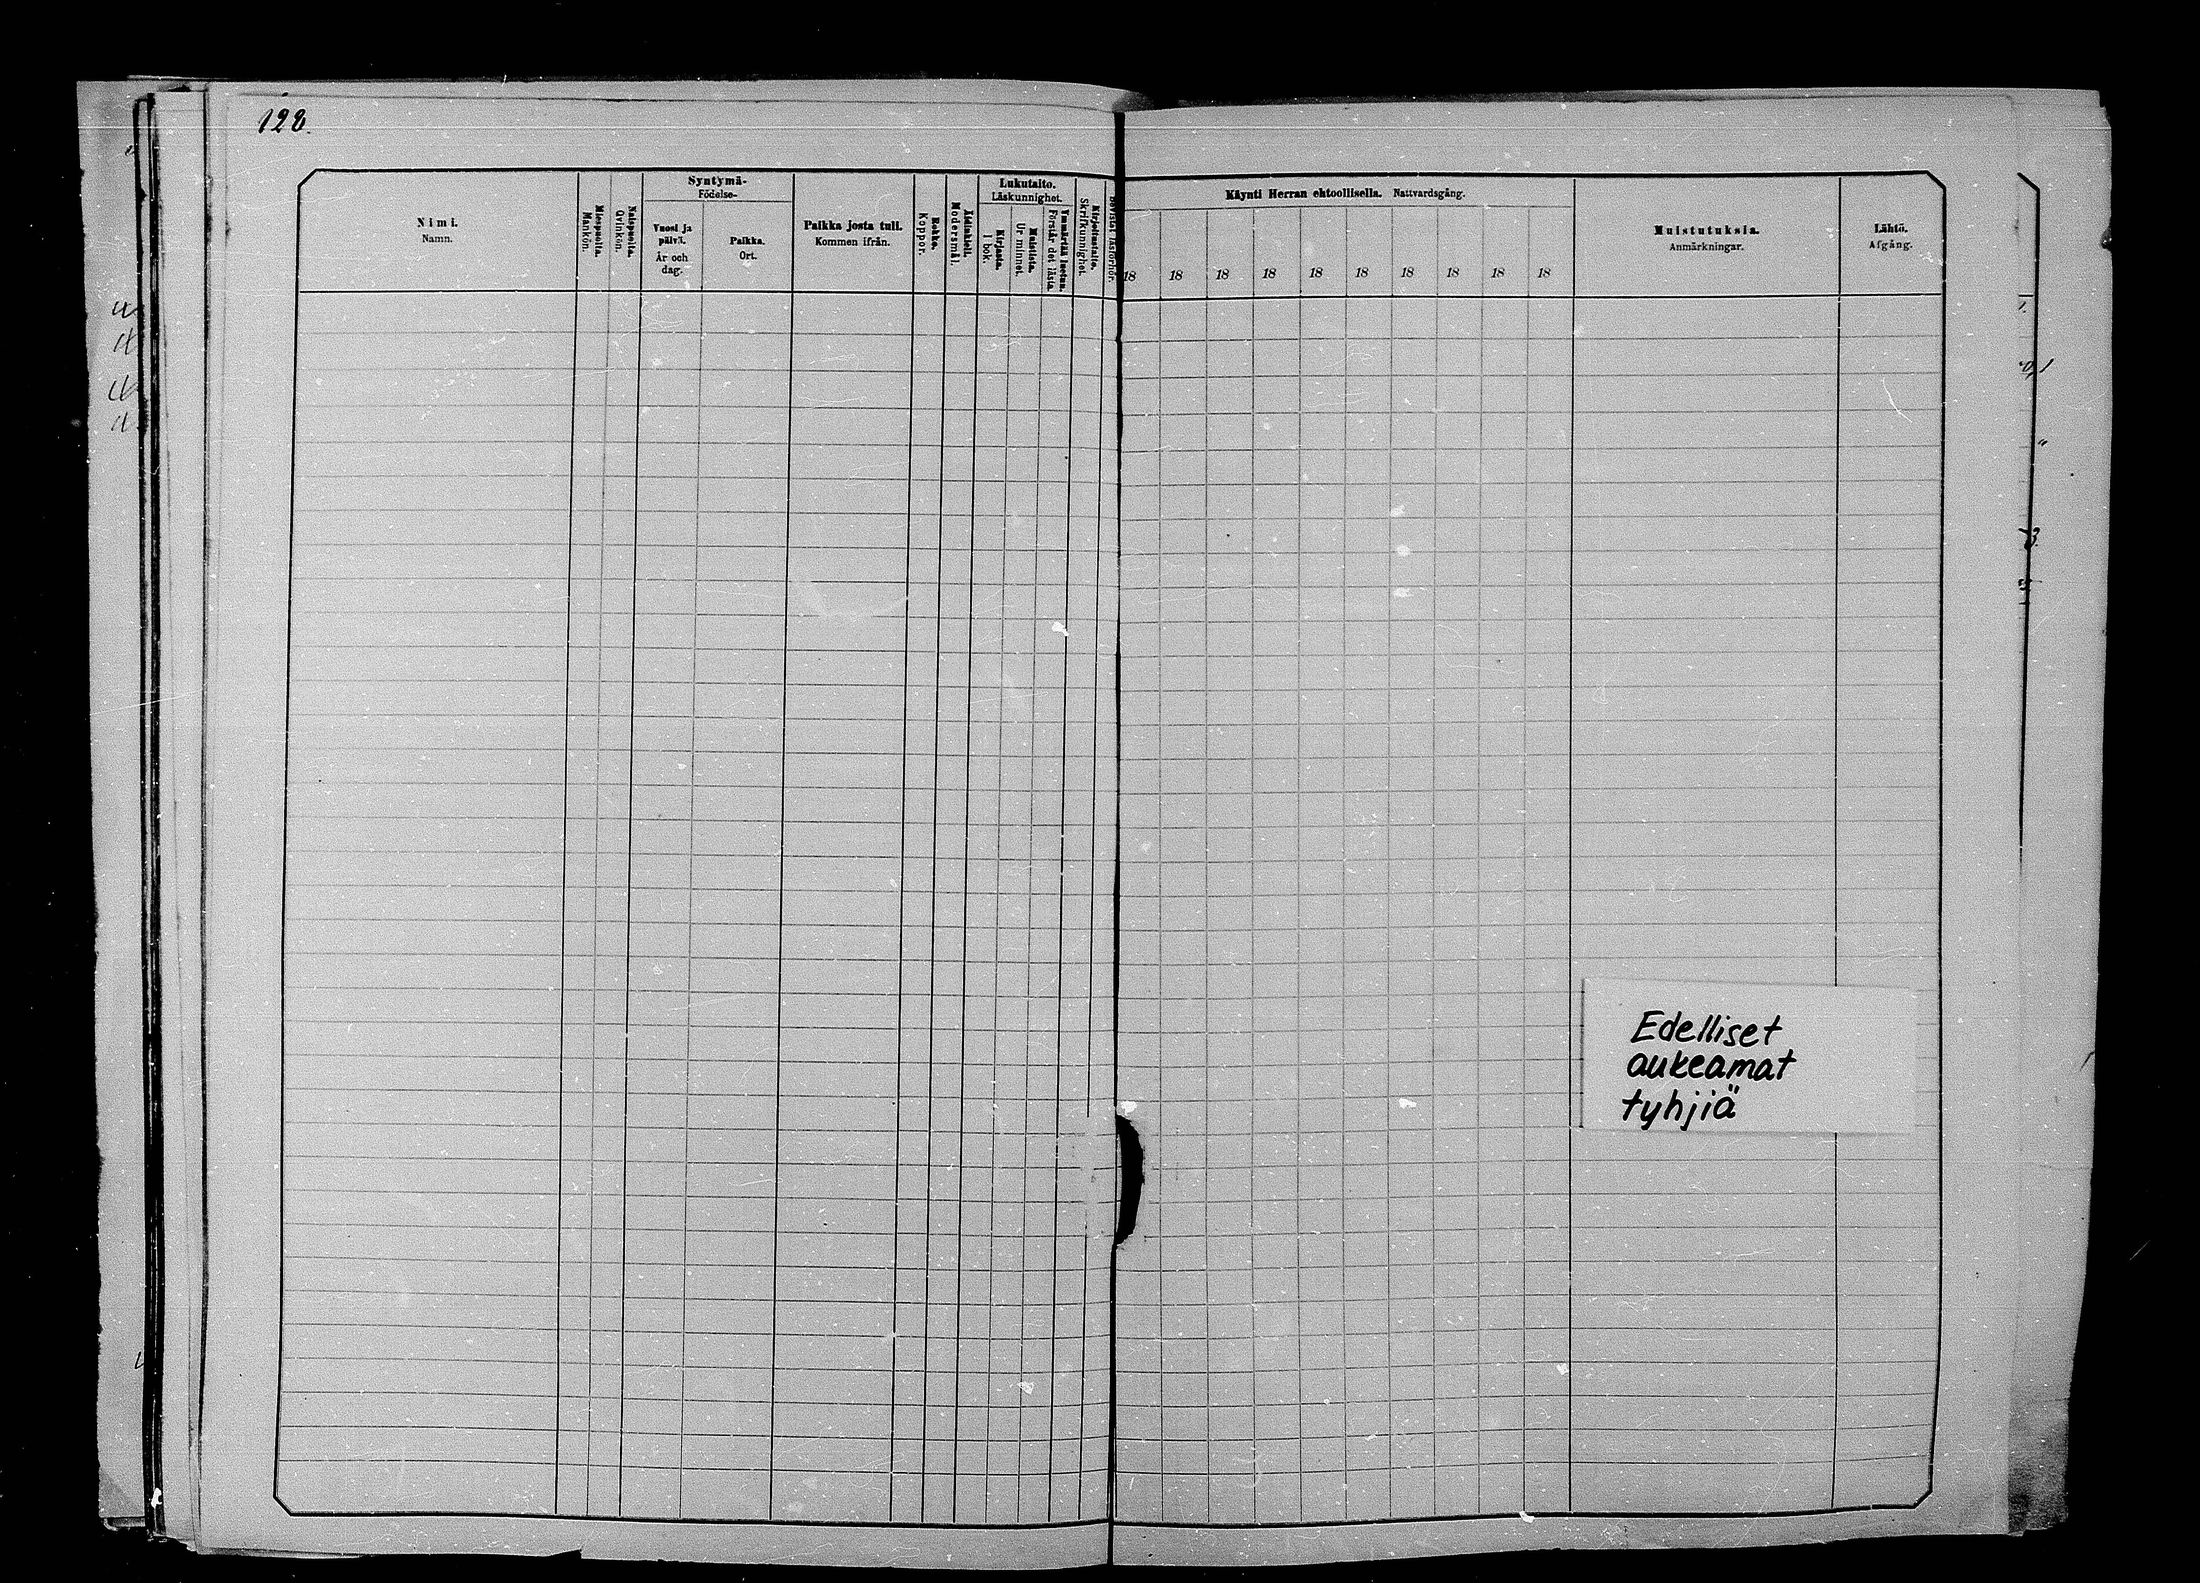 128.
Nimi.
Namn.
Miespuolta.
Mankön.
Naispuolta.
Qvinkön.
Syntymä-
Födelse-
Vuosi ja
päivä.
År och
dag.
Paikka.
Ort.
Paikka josta tuli.
Kommen ifrån.
Rokko.
Koppor.
Äidinkieli.
Modersmål.
Lukutaito.
Läskunnighet.
Kirjasta.
I bok.
Muistista.
Ur minnet.
Ymmärtää luetun.
Förstår det lästa.
Kirjoitustaito.
Skrifkunnighet.
Bevistat läsförhör.
Käynti Herran ehtoollisella. Nattvardsgång.
18 18 18 18 18 18 18 18 18 18
Muistutuksia.
Anmärkningar.
Lähtö.
Afgång.
Edelliset
aukeamat
tyhjiä